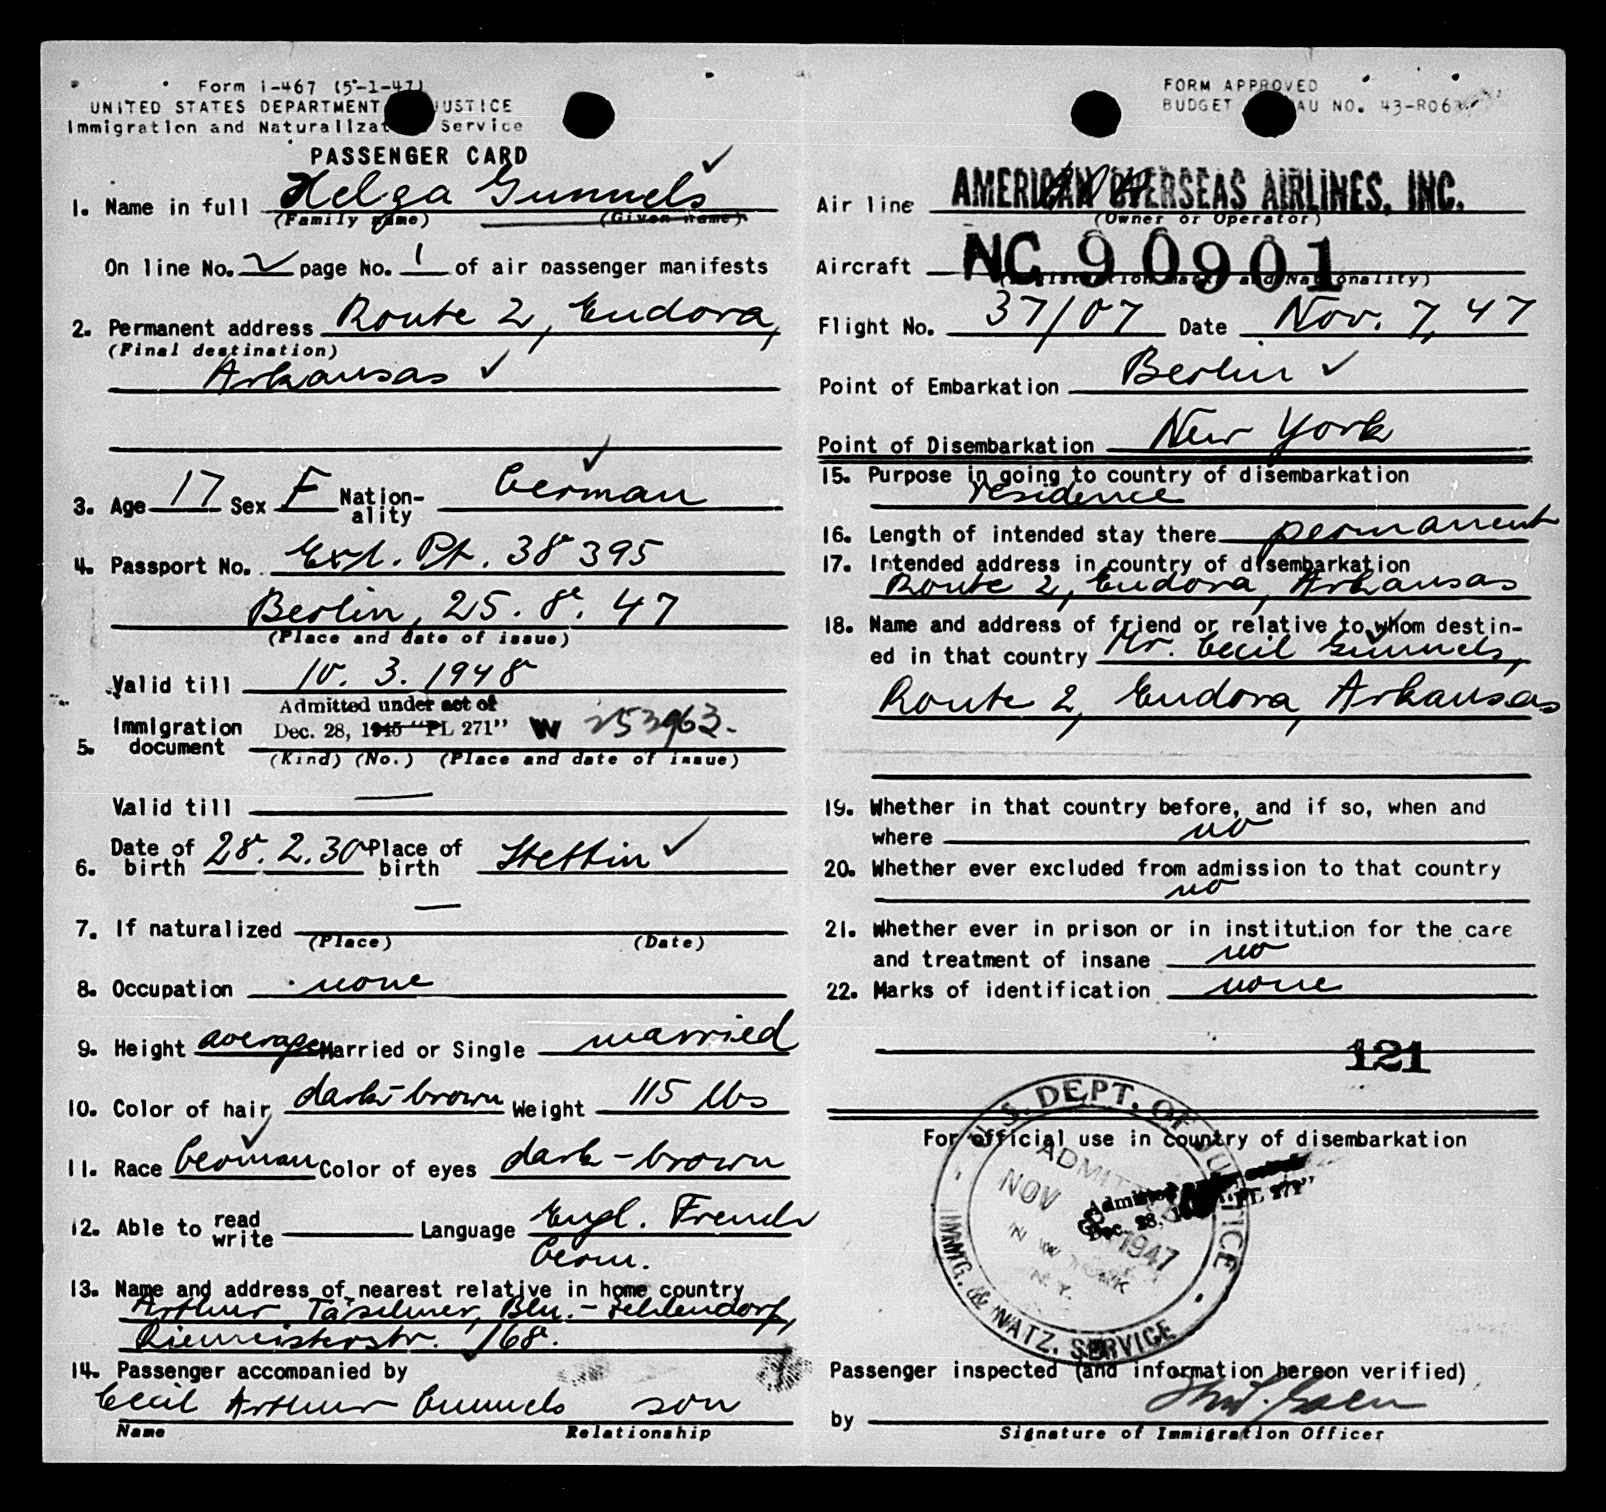 Form I-467 (5-1-47)
UNITED STATES DEPARTMENT JUSTICE
Immigration and Naturalizat Service
PASSENGER CARD
1. Name in full Helga Gunnels
(Family name) (Given name)
On line No. 2 page No. 1 of air passenger manifests
2. Permanent address Route 2, Eudora,
(Final destination)
Arkansas
3. Age 17 Sex F Nation-ality German
4. Passport No. Exl. Pt. 38395
Berlin, 25. 8. 47
(Place and date of issue)
Valid till 10. 3. 1948
Admitted under act of
5. Immigration document Dec. 28, 1945 "PL 271" W 253963.
(Kind) (No.) (Place and date of issue)
Valid till —
6. Date of birth 28. 2. 30 Place of birth Stettin
7. If naturalized —
(Place) (Date)
8. Occupation none
9. Height average Married or Single married
10. Color of hair dark-brown Weight 115 lbs
11. Race German Color of eyes dark-brown
12. Able to read write Language Engl. French
Germ.
13. Name and address of nearest relative in home country
Arthur Täschner, Bln.-Zehlendorf,
Riemeisterstr. 168.
14. Passenger accompanied by
Cecil Arthur Gunnels son
Name Relationship
FORM APPROVED
BUDGET AU NO. 43-R063
Air line AMERICAN OVERSEAS AIRLINES, INC.
(Owner or Operator)
Aircraft NC 90901
(Registration marks and Nationality)
Flight No. 37/07 Date Nov. 7, 47
Point of Embarkation Berlin
Point of Disembarkation New York
15. Purpose in going to country of disembarkation
residence
16. Length of intended stay there permanent
17. Intended address in country of disembarkation
Route 2, Eudora, Arkansas
18. Name and address of friend or relative to whom destin-
ed in that country Mr. Cecil Gunnels,
Route 2, Eudora, Arkansas
19. Whether in that country before, and if so, when and
where no
20. Whether ever excluded from admission to that country
no
21. Whether ever in prison or in institution for the care
and treatment of insane no
22. Marks of identification none
121
For official use in country of disembarkation
U.S. DEPT. OF JUSTICE
ADMITTED
NOV 8 1947
NEW YORK
N.Y.
IMMG. & NATZ. SERVICE
Admitted
Dec. 28, "PL 271"
Passenger inspected (and information hereon verified)
by
Signature of Immigration Officer